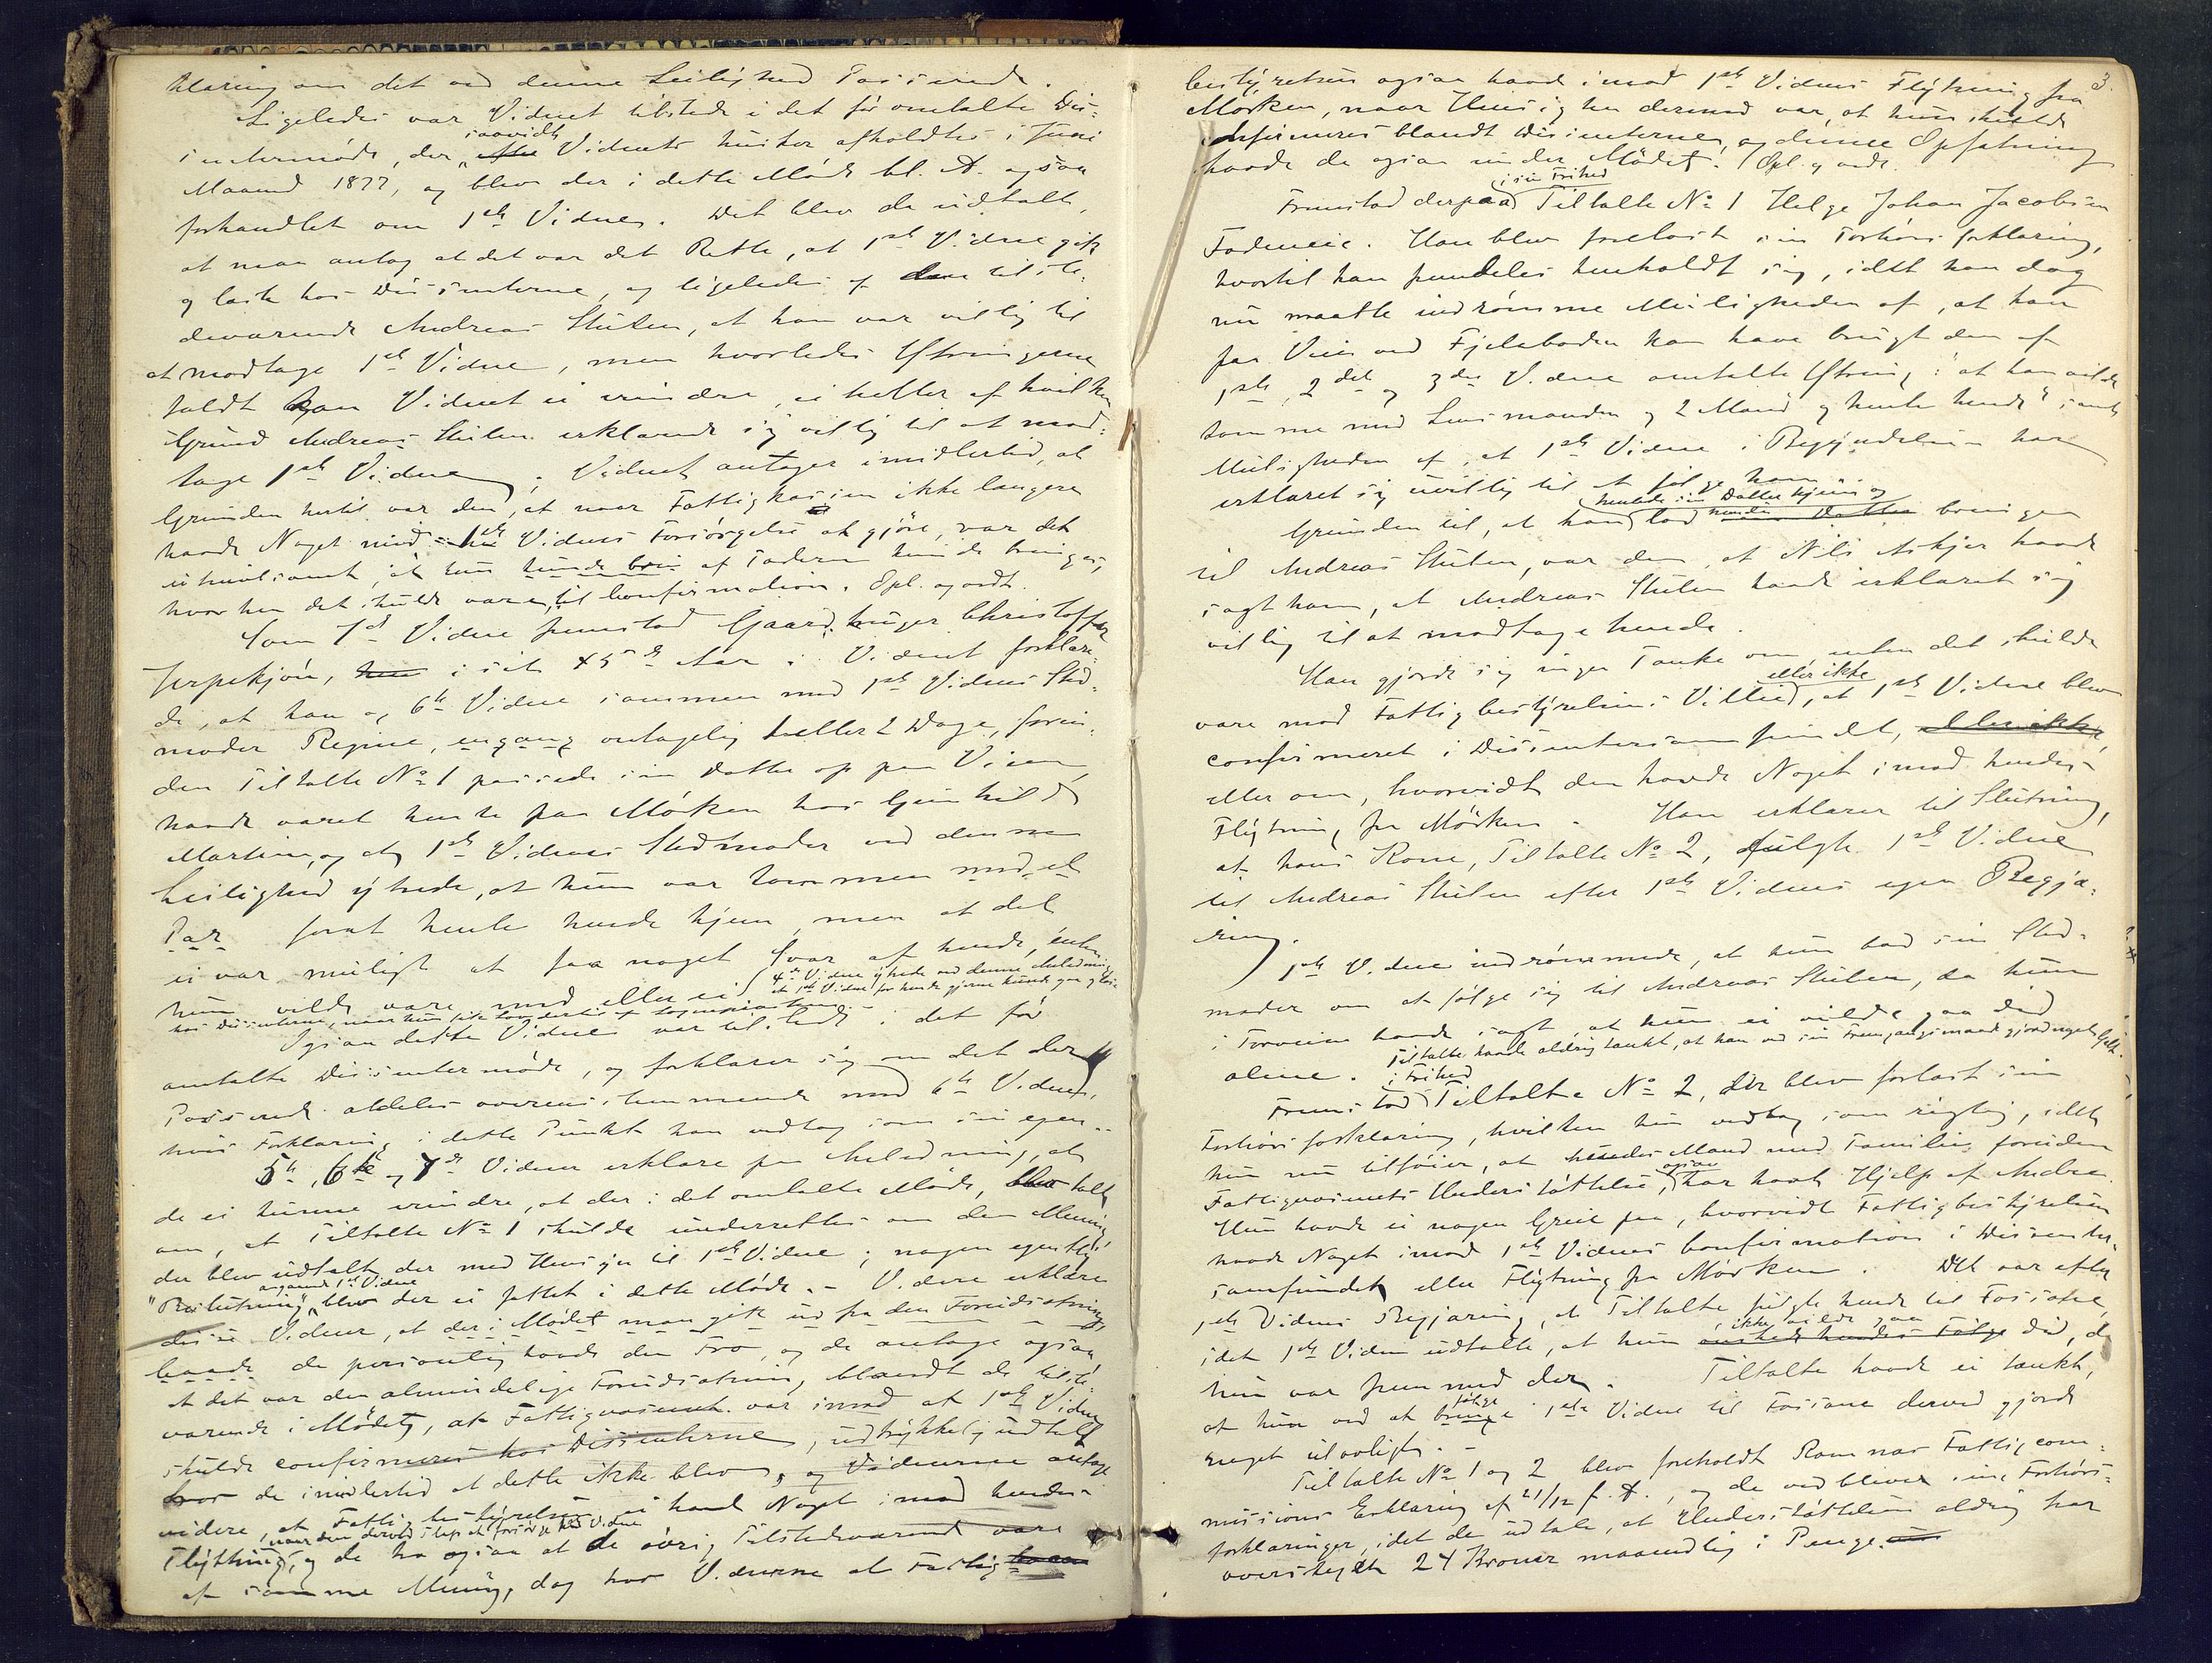 klaring om det ved denne Leilighed Passerede.
Ligeledes var Vidnet tilstede i det før omtalte Dis-
sentermøde, der saavidt Vidnet husker afholdtes i Juni
Maaned 1877, og blev der i dette Møde bl. A. ogsaa
forhandlet om 1ste Vidne. Det blev da udtalt,
at man antog at det var det Rette, at 1ste Vidne gik
og læste hos Dissenterne, og ligeledes af den tilste-
deværende Andreas Stulen, at han var villig til
at modtage 1ste Vidne, men hvorledes Ytringerne
faldt kan Vidnet ei erindre, ei heller af hvilken
Grund Andreas Stulen erklærede sig villig til at mod-
tage 1ste Vidne; Vidnet antager imidlertid, at
Grunden hertil var den, at naar Fattigkassen ikke længere
havde Noget med 1ste Vidnes Forsørgelse at gjøre, var det
utvivlsomt, at hun kunde af Faderen kunde bringes,
hvor hen det skulde være, til Confirmation. Opl. og vedt.
Som 7de Vidne fremstod Gaardbruger Christoffer
Jerpekjøn, i sit 45de Aar. Vidnet forklare-
de, at han og 6te Vidne sammen med 1ste Vidnes Sted-
moder Regine, engang antagelig 1 eller 2 Dage, foren-
den Tiltalte No 1 passede sin Datter op paa Veien,
havde været henne paa Mørken hos Gunhild
Martine, og at 1ste Vidnes Stedmoder ved denne
Leilighed ytrede, at hun var kommen med et
Par forat hente hende hjem, men at det
ei var muligt at faa noget Svar af hende, enten
hun vilde være med eller ei. 4de Vidne ytrede ved denne Anledning,
at 1ste Vidne for hende gjerne kunde gaa og læse
hos Dissenterne, naar hun fik Lov dertil af Sognepræsten.
Ogsaa dette Vidne var tilstede i det før
omtalte Dissentermøde, og forklarer sig om det der
Passerede aldeles overensstemmende med 6te Vidne,
hvis Forklaring i dette Punkt han vedtog som sin egen.
5te, 6te og 7de Vidne erklære paa Anledning, at
de ei kunne erindre, at der i det omtalte Møde, blev talt
om, at Tiltalte No 1 skulde underrettes om den Mening,
der blev udtalt der med Hensyn til 1ste Vidne; nogen egentlig
"Beslutning" angaaende 1ste Vidne blev der ei fattet i dette Møde. - Videre erklære
disse Vidner, at der i Mødet man gik ud fra den Forudsætning,
baade de personlig havde den Tro, og de antage ogsaa
at det var den almindelige Forudsætning blandt de tilste-
værende i Mødet, at Fattigvæsenet var imod at 1ste Vidne
skulde confirmeres hos Dissenterne, udtrykkelig udtalt
tror de imidlertid at dette ikke blev, og Vidnerne antage
videre, at Fattigbestyrelsen ei havde Noget imod hendes
Flytning, naar den derved slap at forsørge 1ste Vidne og de tro ogsaa at de øvrig Tilstedeværende vare
af samme Mening, dog tror Vidnerne at Fattig-
3.
bestyrelsen ogsaa havde imod 1ste Vidnes Flytning fra
Mørken, naar Hensigten dermed var, at hun skulde
confirmeres blandt Dissenterne, og denne Opfatning
havde de ogsaa under Mødet. Opl. og vedt.
Fremstod derpaa i sin Frihed Tiltalte No 1 Helge Johan Jacobsen
Fodeneie. Han blev forelæst sin Forhørsforklaring,
hvortil han fremdeles henholdt sig, idet han dog
nu maatte indrømme Muligheden af, at han
paa Veien ved Fjeldboden kan have brugt den af
1ste, 2det og 3die Vidne omtalte Ytring: "at han vilde
komme med Lensmanden og 2 Mand og hente hende" samt
Muligheden af, at 1ste Vidne i Begyndelsen har
erklæret sig uvillig til at følge ham.
Grunden til, at han hentede sin Datter hjem og lod hende bringe
til Andreas Stulen, var den, at Nils Askjer havde
sagt ham, at Andreas Stulen havde erklæret sig
villig til at modtage hende.
Han gjorde sig ingen Tanke om, enten det skulde
være mod Fattigbestyrelsens Villie eller ikke, at 1ste Vidne blev
confirmeret i Dissentersamfundet,
eller om, hvorvidt den havde Noget imod hendes
Flytning fra Mørken. Han erklærer til Slutning,
at hans Kone, Tiltalte No 2, fulgte 1ste Vidne
til Andreas Stulen efter 1ste Vidnes egen Begjæ-
ring.
1ste Vidne indrømmede, at hun bad sin Sted-
moder om at følge sig til Andreas Stulen, da hun
i Forveien havde sagt, at hun ei vilde gaa did
alene. Tiltalte havde aldrig tænkt, at han ved sin Fremgangsmaade gjorde noget Galt.
Fremstod i Frihed Tiltalte No 2, Der blev forlæst sin
Forhørsforklaring, hvilken hun vedtog som rigtig, idet
hun nu tilføier, at hendes Mand med Familie foruden
Fattigvæsenets Understøttelse, ogsaa har havt Hjelp af Andre.
Hun havde ei nogen Greie paa, hvorvidt Fattigbestyrelsen
havde Noget imod 1ste Vidnes Confirmation i Dissenter-
samfundet eller Flytning fra Mørken. Det var efter
1ste Vidnes Begjæring, at Tiltalte fulgte hende til Fossane,
idet 1ste Vidne udtalte, at hun ikke vilde gaa did, da
hun var fremmed der. Tiltalte havde ei tænkt,
at hun ved at følge 1ste Vidne til Fossane derved gjorde
noget ulovligt. -
Tiltalte No 1 og 2 blev foreholdt Ramnæs Fattigcom-
missions Erklæring af 21/12 f. A., og de vedbliver sine Forhørs-
forklaringer, idet de udtale, at Understøttelsen aldrig har
oversteget 24 Kroner maanedlig i Penge.